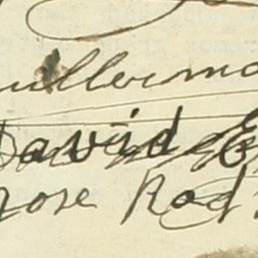 uillermo
David E
rose Rod